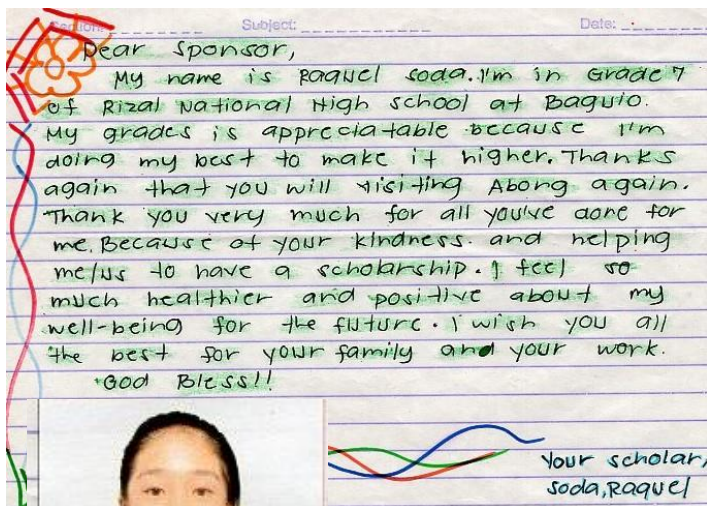 Section: Subject: Date:
Dear Sponsor,
My name is Raquel Soda. I'm in Grade 7
of Rizal National High school at Baguio.
My grades is appreciatable because I'm
doing my best to make it higher. Thanks
again that you will visiting Abong again.
Thank you very much for all you've done for
me. Because of your kindness. and helping
me/us to have a scholarship. I feel so
much healthier and positive about my
well-being for the future. I wish you all
the best for your family and your work.
God Bless!!
Your scholar,
Soda, Raquel